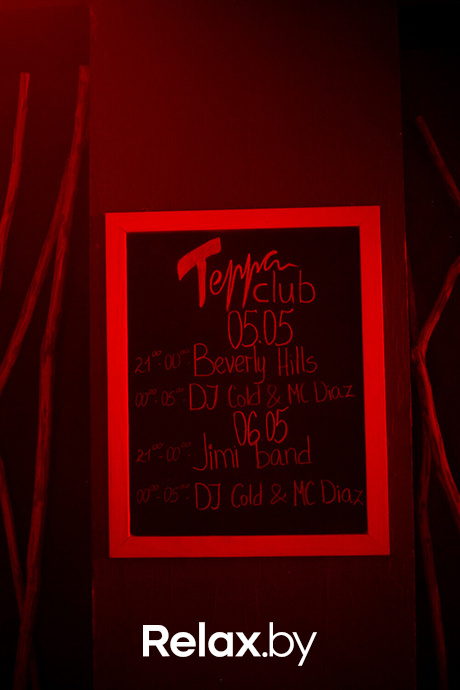 Терра
club
05.05
21⁰⁰-00⁰⁰ Beverly Hills
00⁰⁰-05⁰⁰ DJ Cold & MC Diaz
06.05
21⁰⁰-00⁰⁰ Jimi band
00⁰⁰-05⁰⁰ DJ Cold & MC Diaz
Relax.by